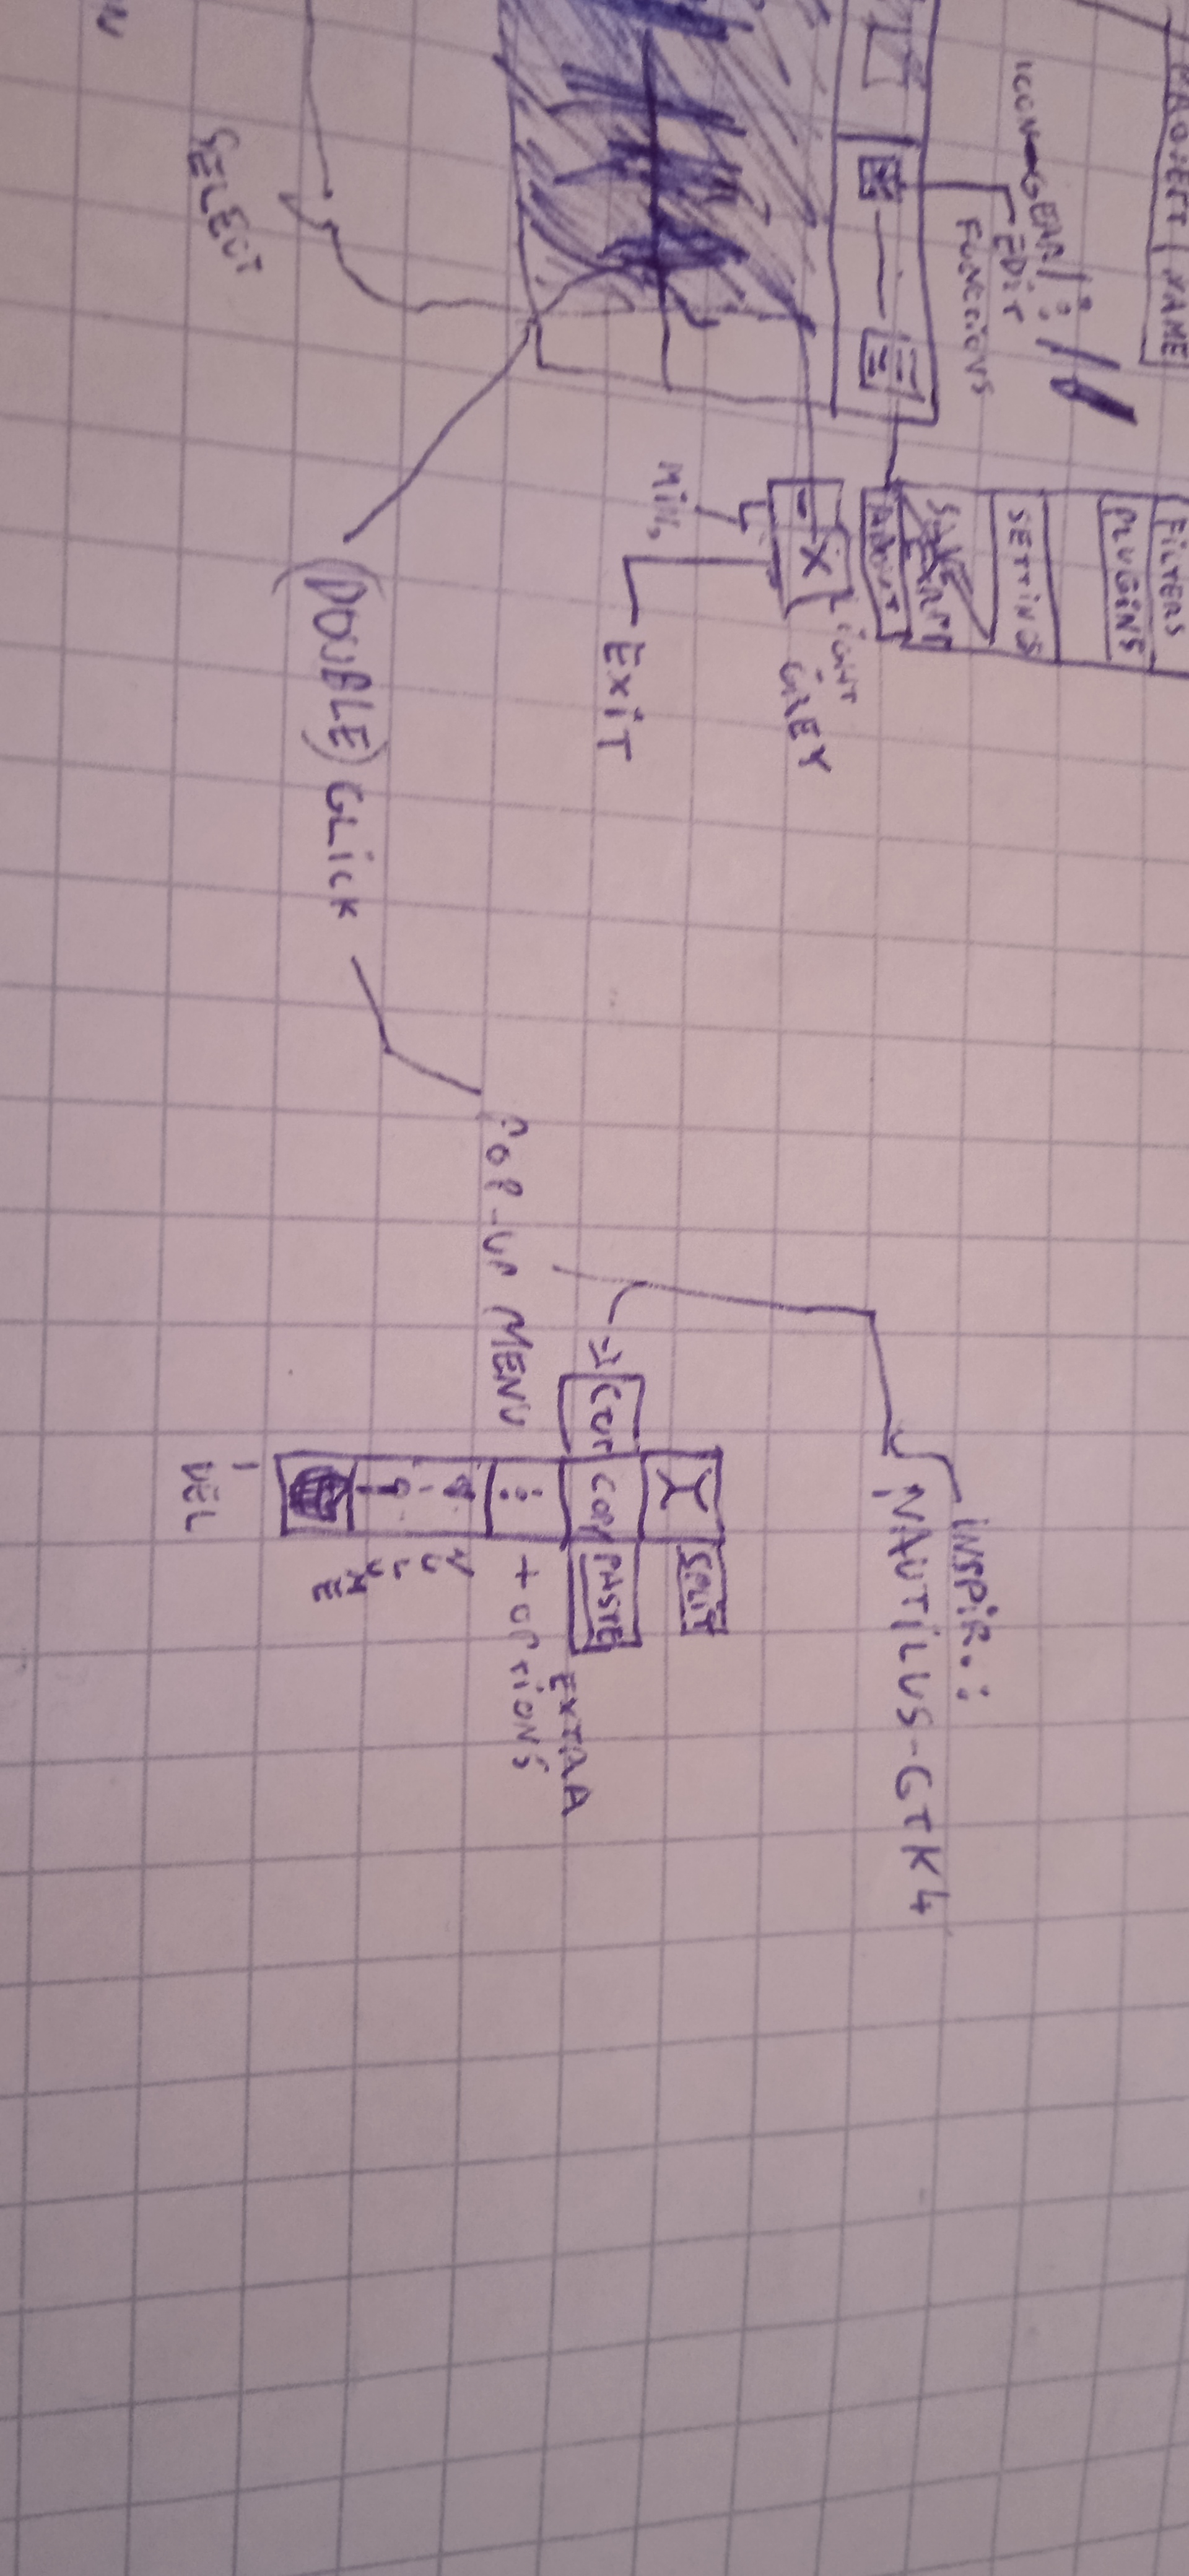 PROJECT NAME
ICON GEAR / ⋮ /
EDIT
FUNCTIONS
FILTERS
PLUGINS
SETTINGS
ABOUT
- X
MIN,
EXIT
GREY
SELECT
(DOUBLE) CLICK
POP-UP MENU
INSPIR.:
NAUTILUS-GTK4
SPLIT
CUT
COPY
PASTE
EXTRA
+ OPTIONS